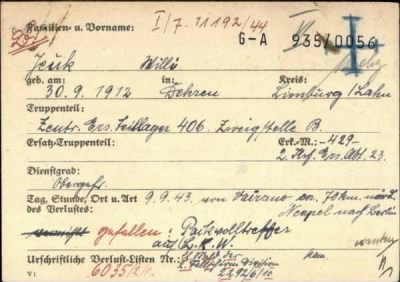 Familien- u. Vorname: I/7. 11192/44
G-A 935/0056
Jeuk Willi
geb. am: in: Kreis:
30.9.1912 Dehren Limburg/Lahn
Truppenteil:
Zentr. Ers. Teillager 406. Zweigstelle B.
Ersatz-Truppenteil: Erk.-M.: -429-
2. Krf. Ers. Abt. 23.
Dienstgrad:
Obergefr.
Tag, Stunde, Ort u. Art 9.9.43. von ca. 70 km nördl.
des Verlustes: Neapel nach Berlin
vermißt gefallen: Packvolltreffer
auf L.K.W.
Urschriftliche Verlust-Listen Nr.:
6035/24. 2. Division
V 1